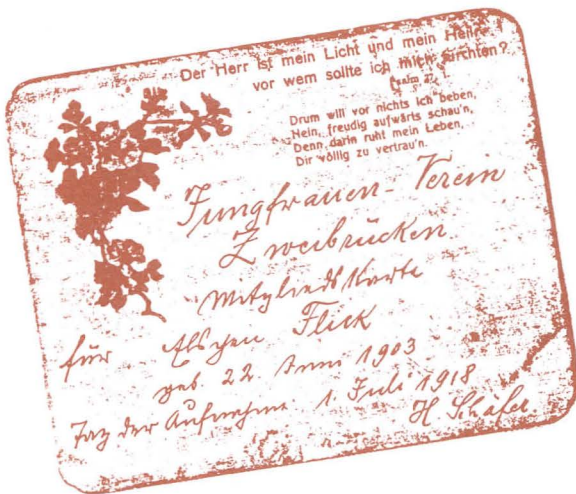 Der Herr ist mein Licht und mein Heil
vor wem sollte ich mich fürchten?
Psalm 27
Drum will vor nichts ich beben,
Nein, freudig aufwärts schau'n,
Denn darin ruht mein Leben,
Dir völlig zu vertrau'n.
Jungfrauen-Verein
Zweibrücken
Mitgliedskarte
für Elschen Flick
geb. 22. Juni 1903
Tag der Aufnahme 1. Juli 1918
H Schäfer